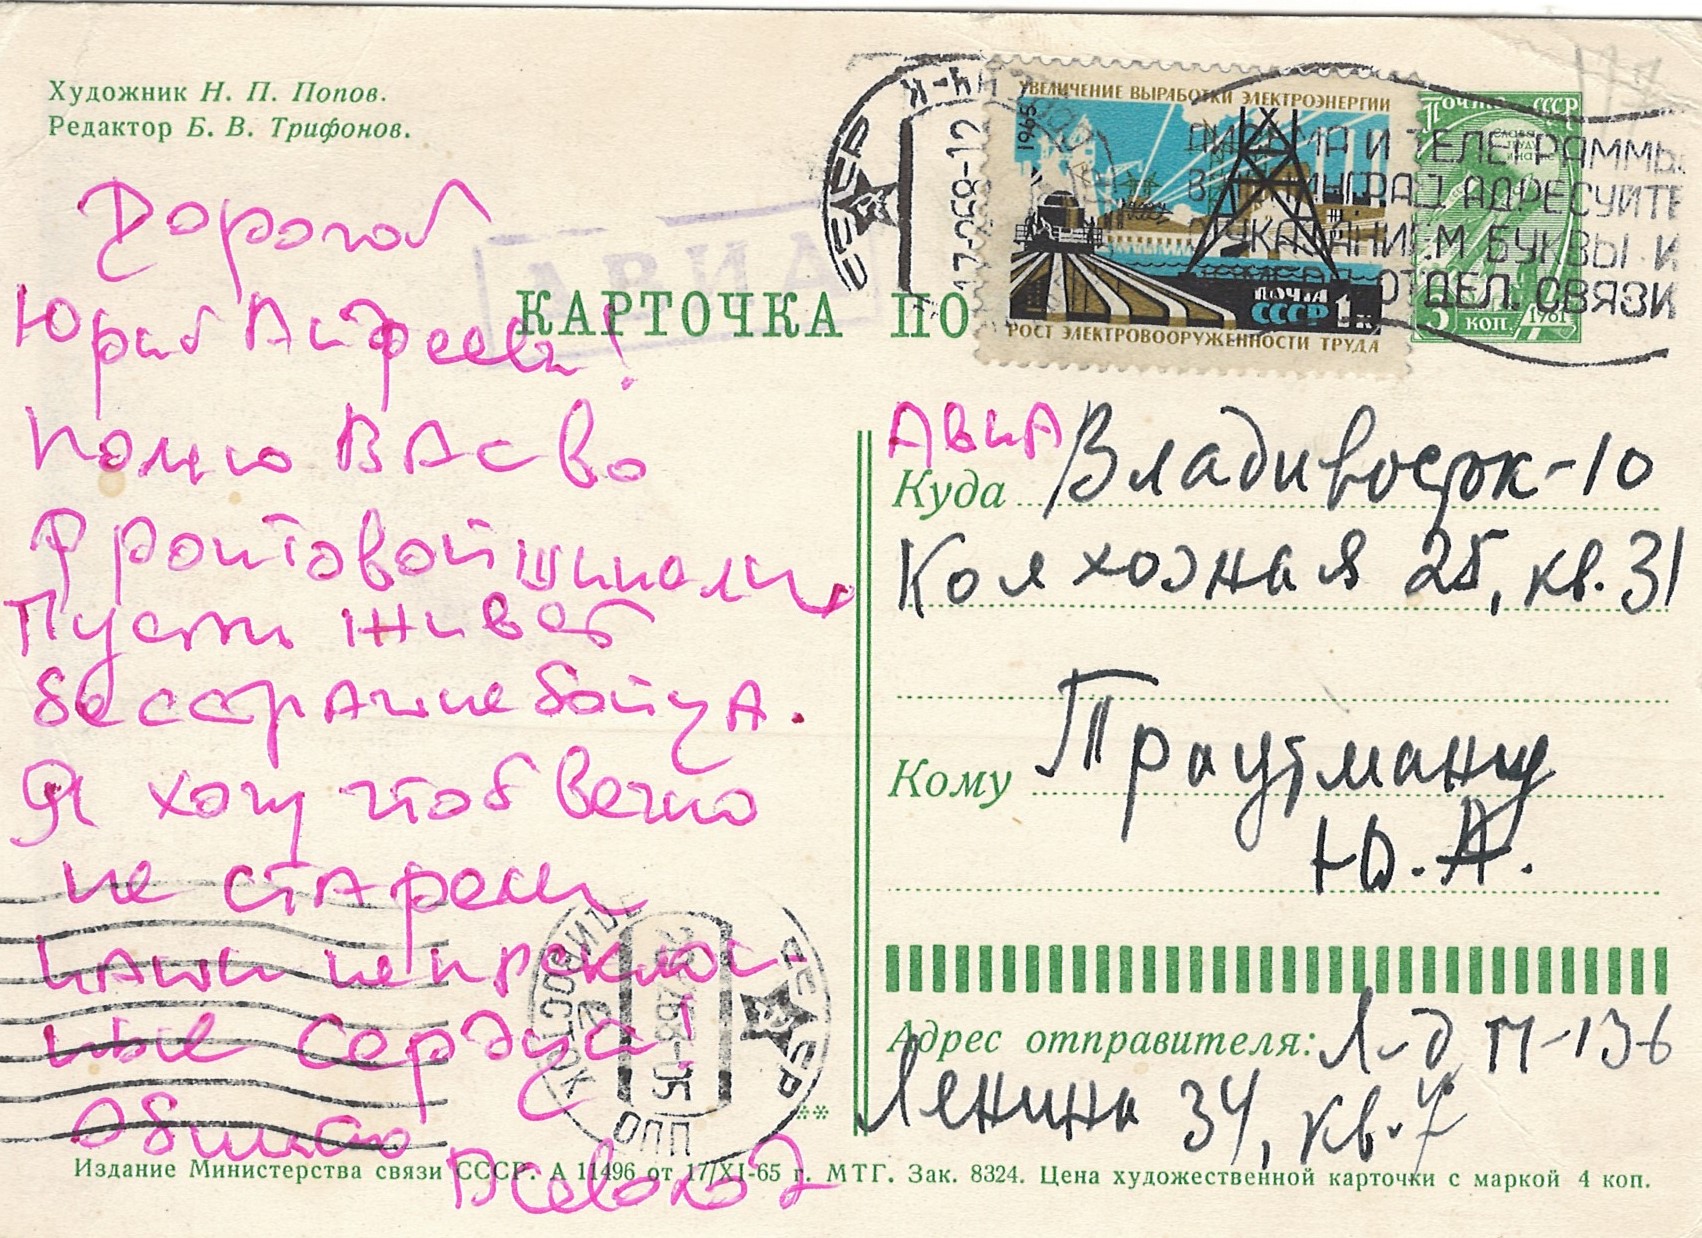 Художник Н. П. Попов.
Редактор Б. В. Трифонов.
АВИА
КАРТОЧКА ПО
СССР
УВЕЛИЧЕНИЕ ВЫРАБОТКИ ЭЛЕКТРОЭНЕРГИИ
1965
ПОЧТА
СССР 1к
РОСТ ЭЛЕКТРОВООРУЖЕННОСТИ ТРУДА
ПОЧТА СССР
3 КОП. 1961
ПИСЬМА И ТЕЛЕГРАММЫ
В ЛЕНИНГРАД АДРЕСУЙТЕ
УКАЗАНИЕМ БУКВЫ И
ОТДЕЛ. СВЯЗИ
Дорогой
Юрий Андреевич!
Помню ВАС во
фронтовой шинели,
Пусть живёт
бесстрашие бойца.
Я хочу чтоб вечно
не старели
наши непреклон-
ные сердца!
Обнимаю
Всеволод
АВИА
Куда Владивосток-10
Колхозная 25, кв. 31
Кому Траутману
Ю. А.
Адрес отправителя: Л-д П-136
Ленина 34, кв. 7
ВЛАДИВОСТОК
СССР
ОПП
**
Издание Министерства связи СССР. А 11496 от 17/XI-65 г. МТГ. Зак. 8324. Цена художественной карточки с маркой 4 коп.